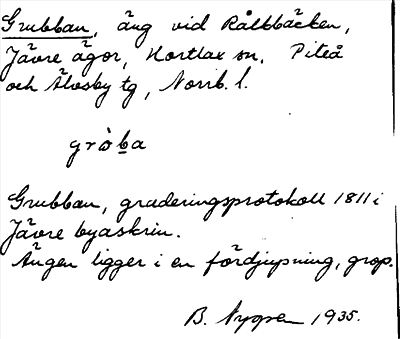 Grubban, äng vid Råbbäcken,
Jävre ägor, Hortlax sn, Piteå
och Älvsby tg, Norrb. l.
gròba
Grubban, graderingsprotokoll 1811 i
Jävre byaskrin.
Ängen ligger i en fördjupning, grop.
B. Nygren 1935.